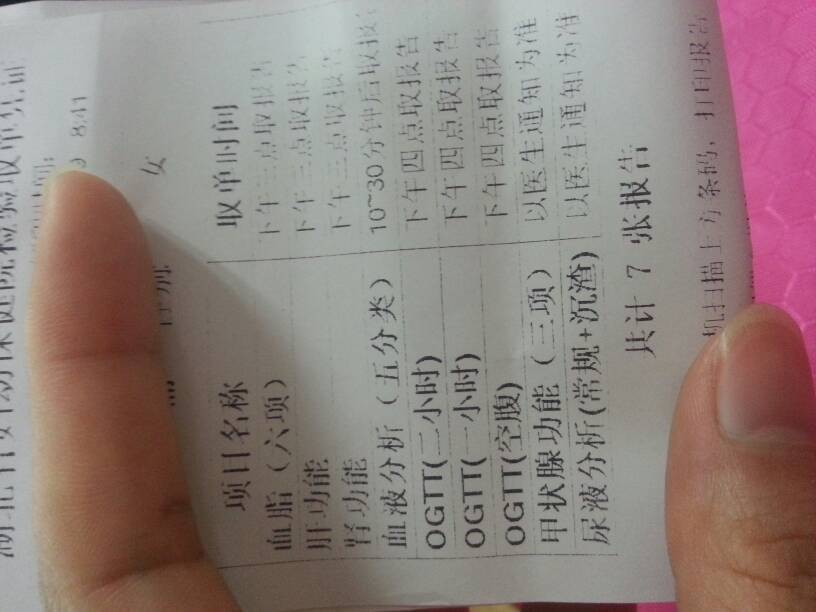 湖北省妇幼保健院检验取单凭证
8:41
性别 女
项目名称 取单时间
血脂（六项） 下午三点取报告
肝功能 下午三点取报告
肾功能 下午三点取报告
血液分析（五分类） 10~30分钟后取报告
OGTT(二小时) 下午四点取报告
OGTT(一小时) 下午四点取报告
OGTT(空腹) 下午四点取报告
甲状腺功能（三项） 以医生通知为准
尿液分析(常规+沉渣) 以医生通知为准
共计 7 张报告
机扫描上方条码，打印报告